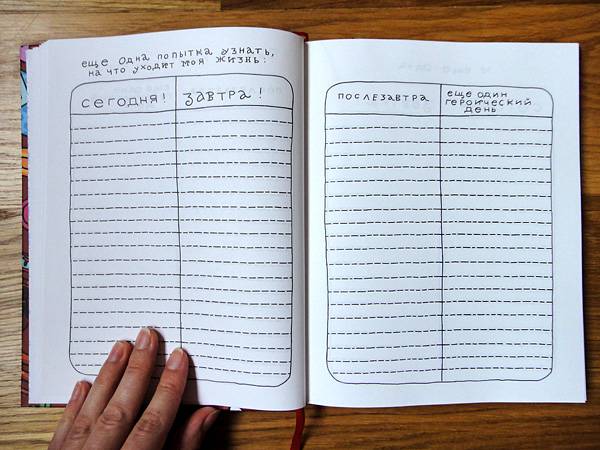 еще одна попытка узнать,
на что уходит моя жизнь:
сегодня!
завтра!
послезавтра
еще один
героический
день